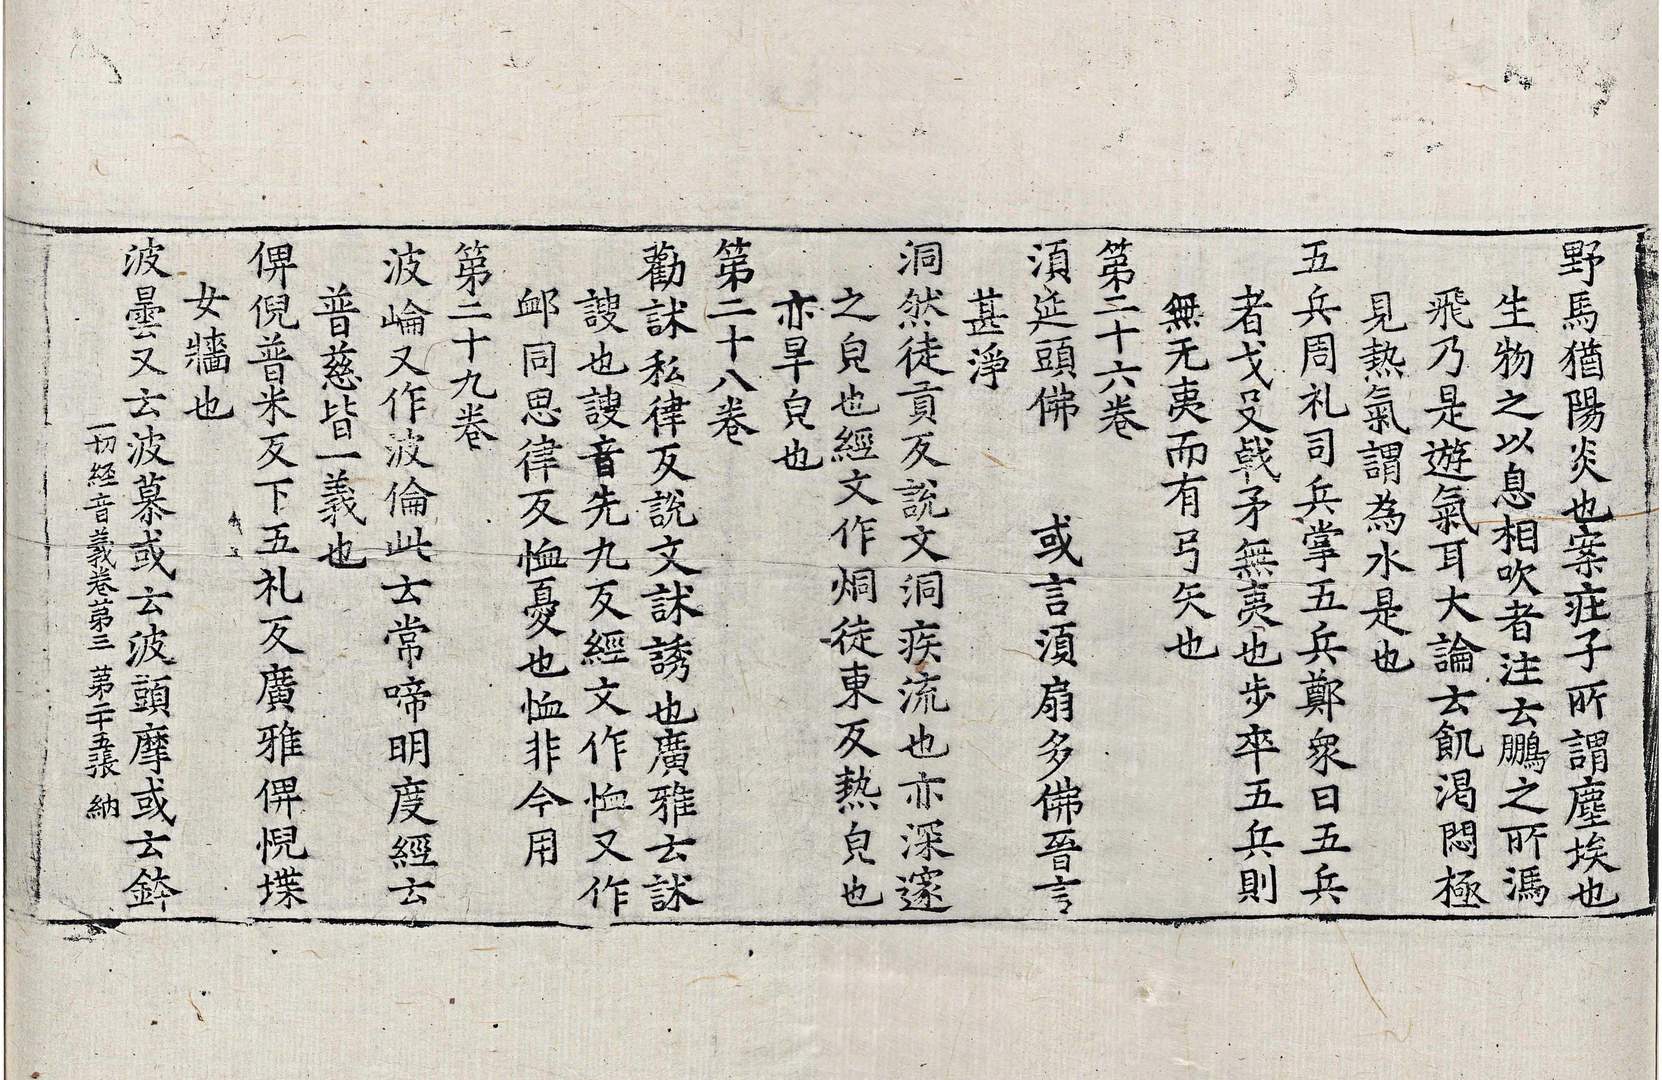 野馬猶陽炎也案莊子所謂塵埃也
生物之以息相吹者注云鵬之所馮
飛乃是遊氣耳大論云飢渴悶極
見熱氣謂為水是也
五兵周礼司兵掌五兵鄭衆曰五兵
者戈殳戟矛無夷也步卒五兵則
無无夷而有弓矢也
第二十六卷
須延頭佛 或言須扇多佛晉言
甚淨
洞然徒貢反說文洞疾流也亦深邃
之皃也經文作烔徒東反熱皃也
亦旱皃也
第二十八卷
勸訹私律反說文訹誘也廣雅云訹
謏也謏音先九反經文作恤又作
卹同思律反恤憂也恤非今用
第二十九卷
波崘又作波倫此云常啼明度經云
普慈皆一義也
俾倪普米反下五礼反廣雅俾倪堞
女牆也
波曇又云波慕或云波頭摩或云鉢
一切經音義卷第三 第二十五張 納